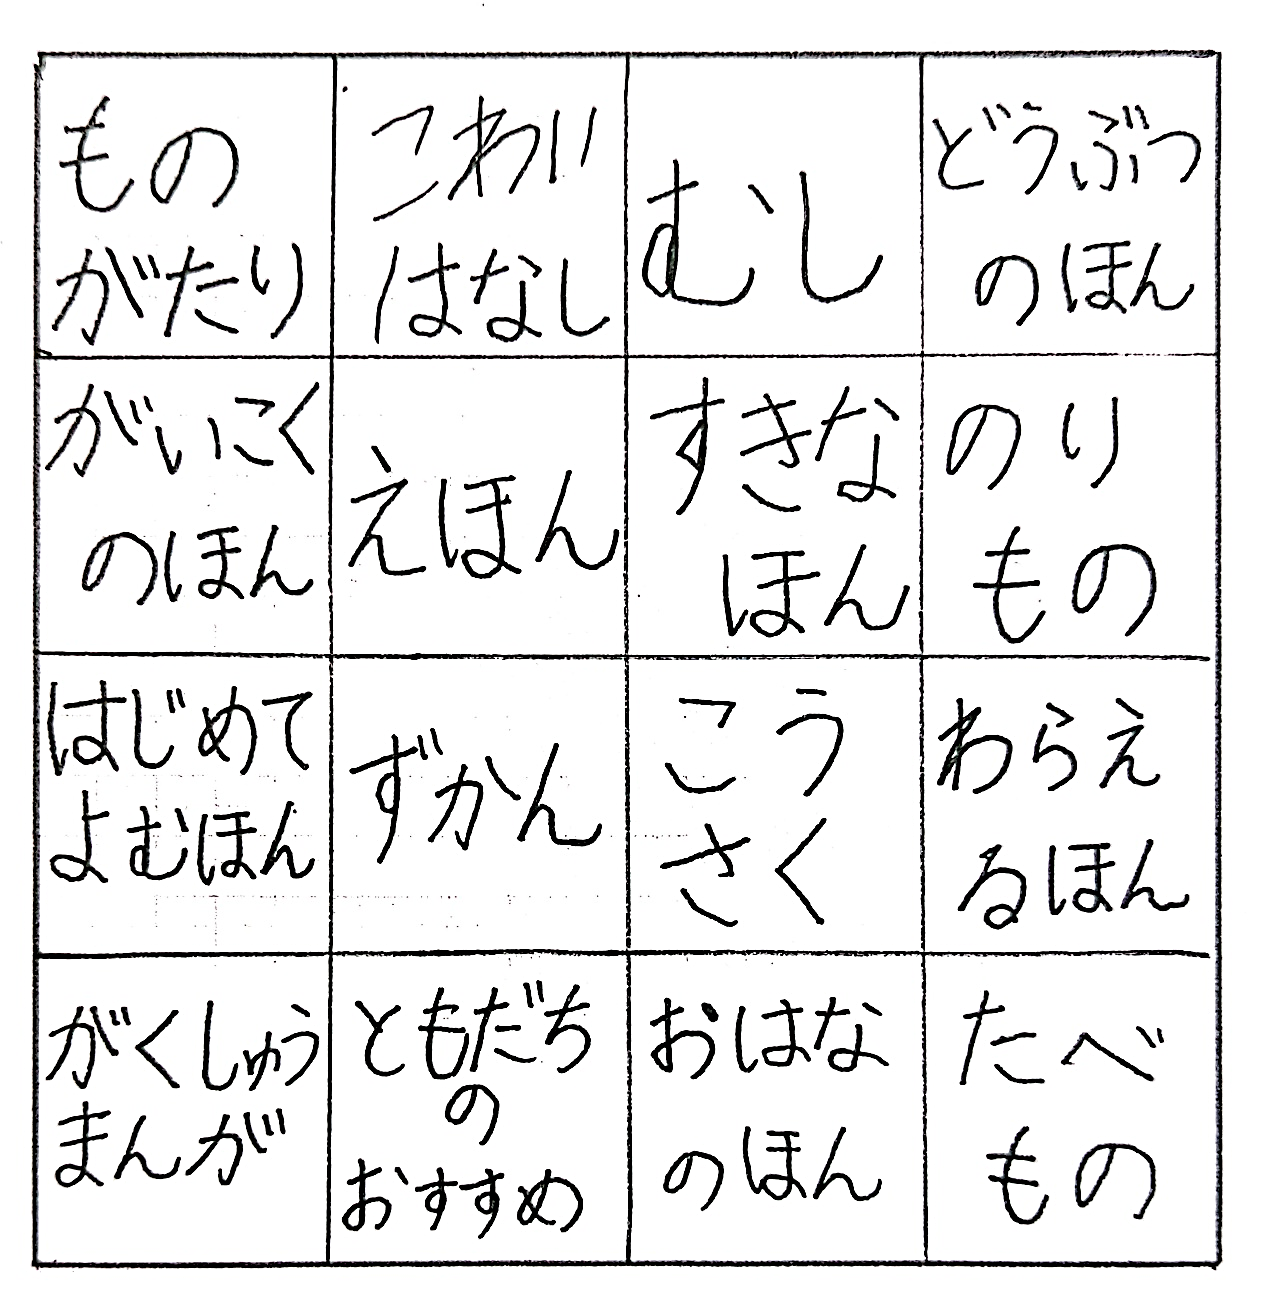 もの
がたり
こわい
はなし
むし
どうぶつ
のほん
がいこく
のほん
えほん
すきな
ほん
のり
もの
はじめて
よむほん
ずかん
こう
さく
わらえ
るほん
がくしゅう
まんが
ともだち
の
おすすめ
おはな
のほん
たべ
もの